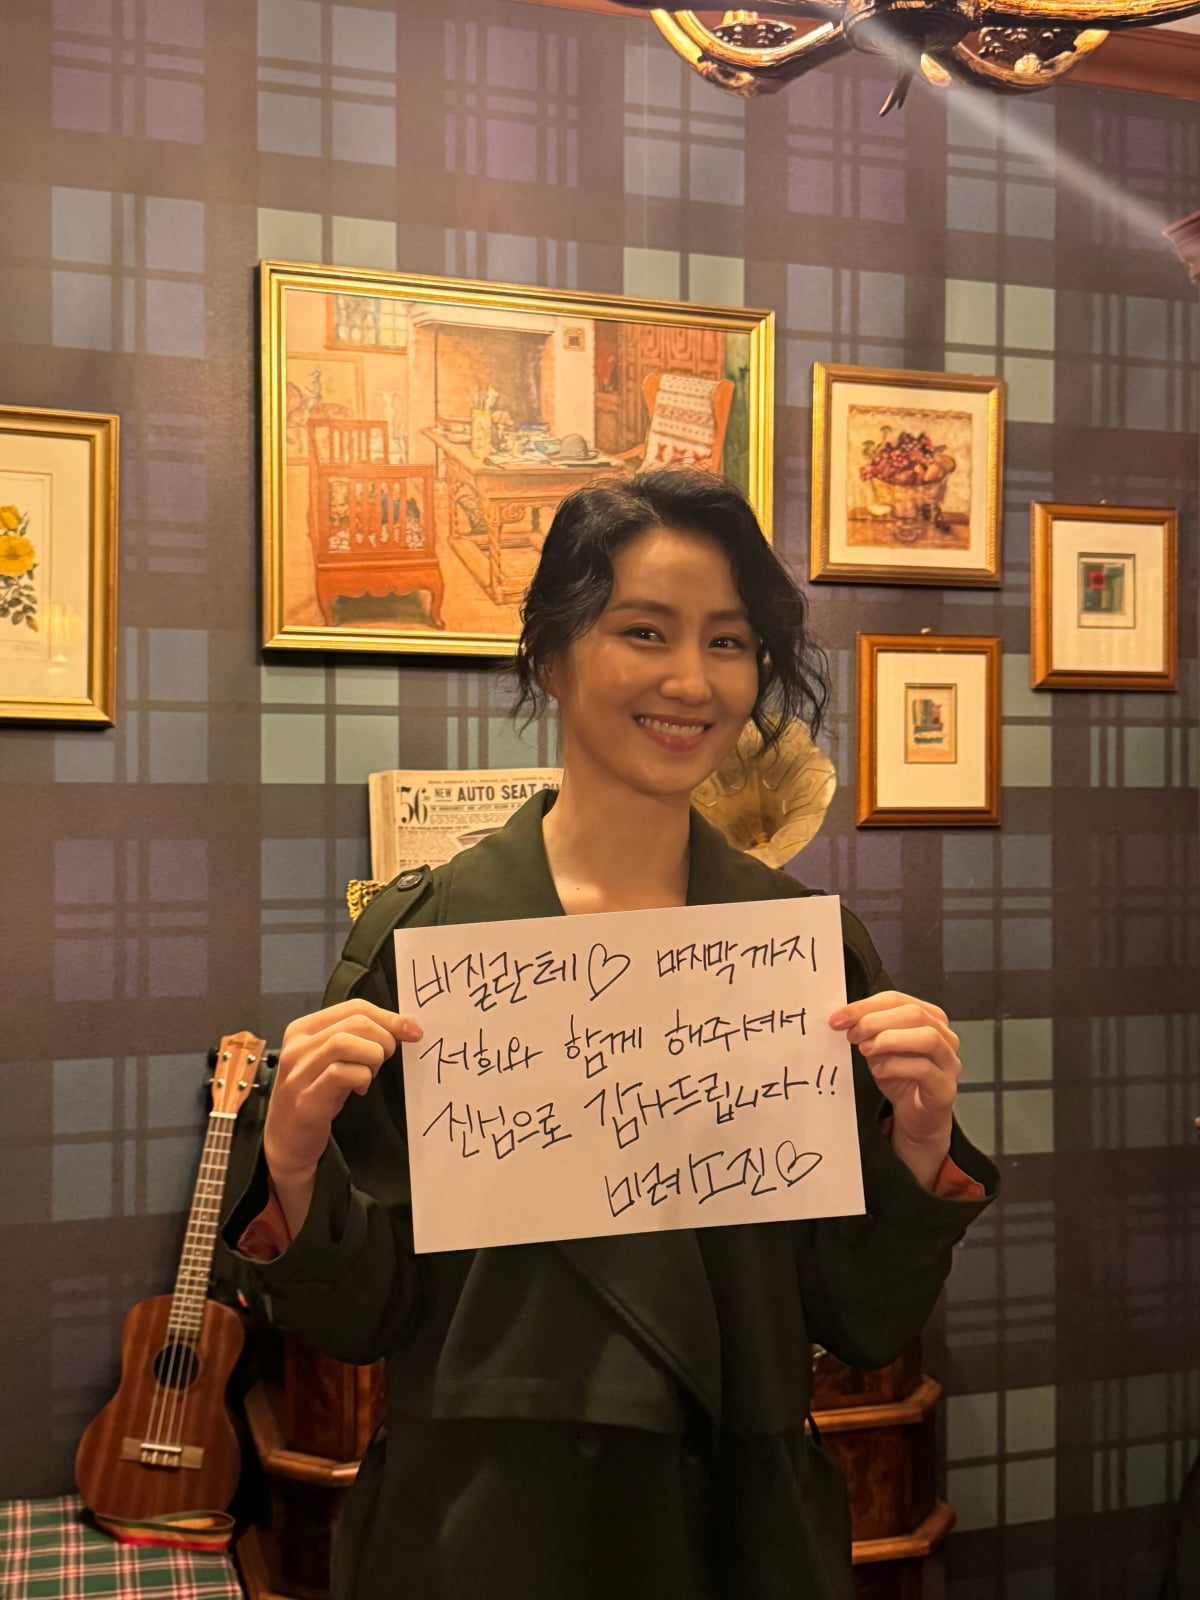 56
NEW AUTO SEAT
비질란테♡ 마지막까지
저희와 함께 해주셔서
진심으로 감사드립니다!!
미려 소진♡